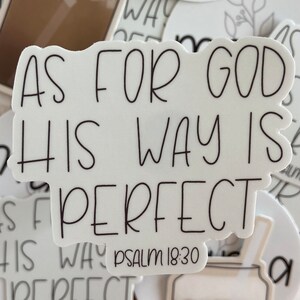 AS FOR GOD
HIS WAY IS
PERFECT
PSALM 18:30
WAY IS
HIS WAY
PERFE